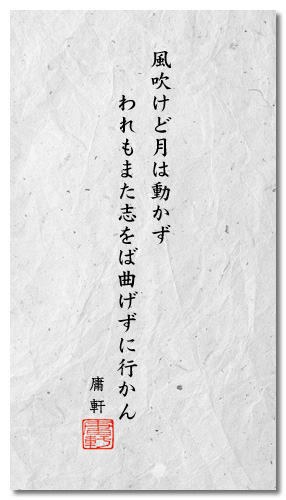 風吹けど月は動かず
われもまた志をば曲げずに行かん
庸軒